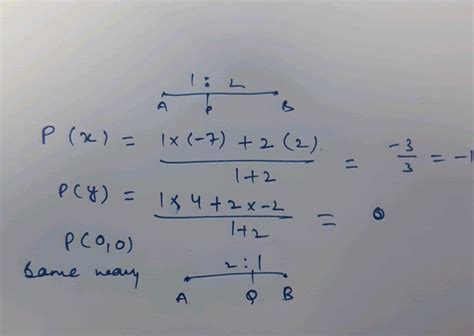 1 : 2
A P B
P(x) = 1×(-7) + 2(2) / 1+2 = -3/3 = -1
P(y) = 1×4 + 2×-2 / 1+2 = 0
P(0,0)
Same way
2 : 1
A Q B